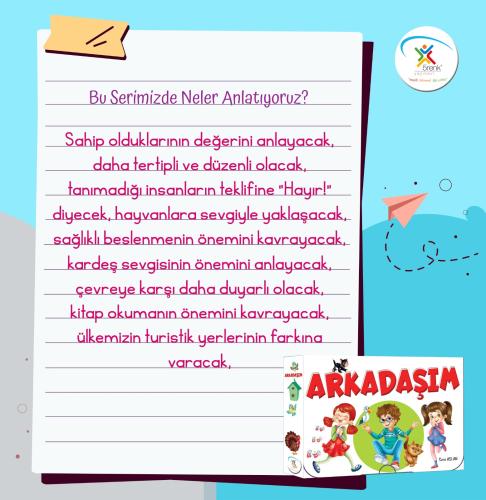 5renk
Bu Serimizde Neler Anlatıyoruz?
Sahip olduklarının değerini anlayacak,
daha tertipli ve düzenli olacak,
tanımadığı insanların teklifine "Hayır!"
diyecek, hayvanlara sevgiyle yaklaşacak,
sağlıklı beslenmenin önemini kavrayacak,
kardeş sevgisinin önemini anlayacak,
çevreye karşı daha duyarlı olacak,
kitap okumanın önemini kavrayacak,
ülkemizin turistik yerlerinin farkına
varacak,
ARKADAŞIM
ARKADAŞIM